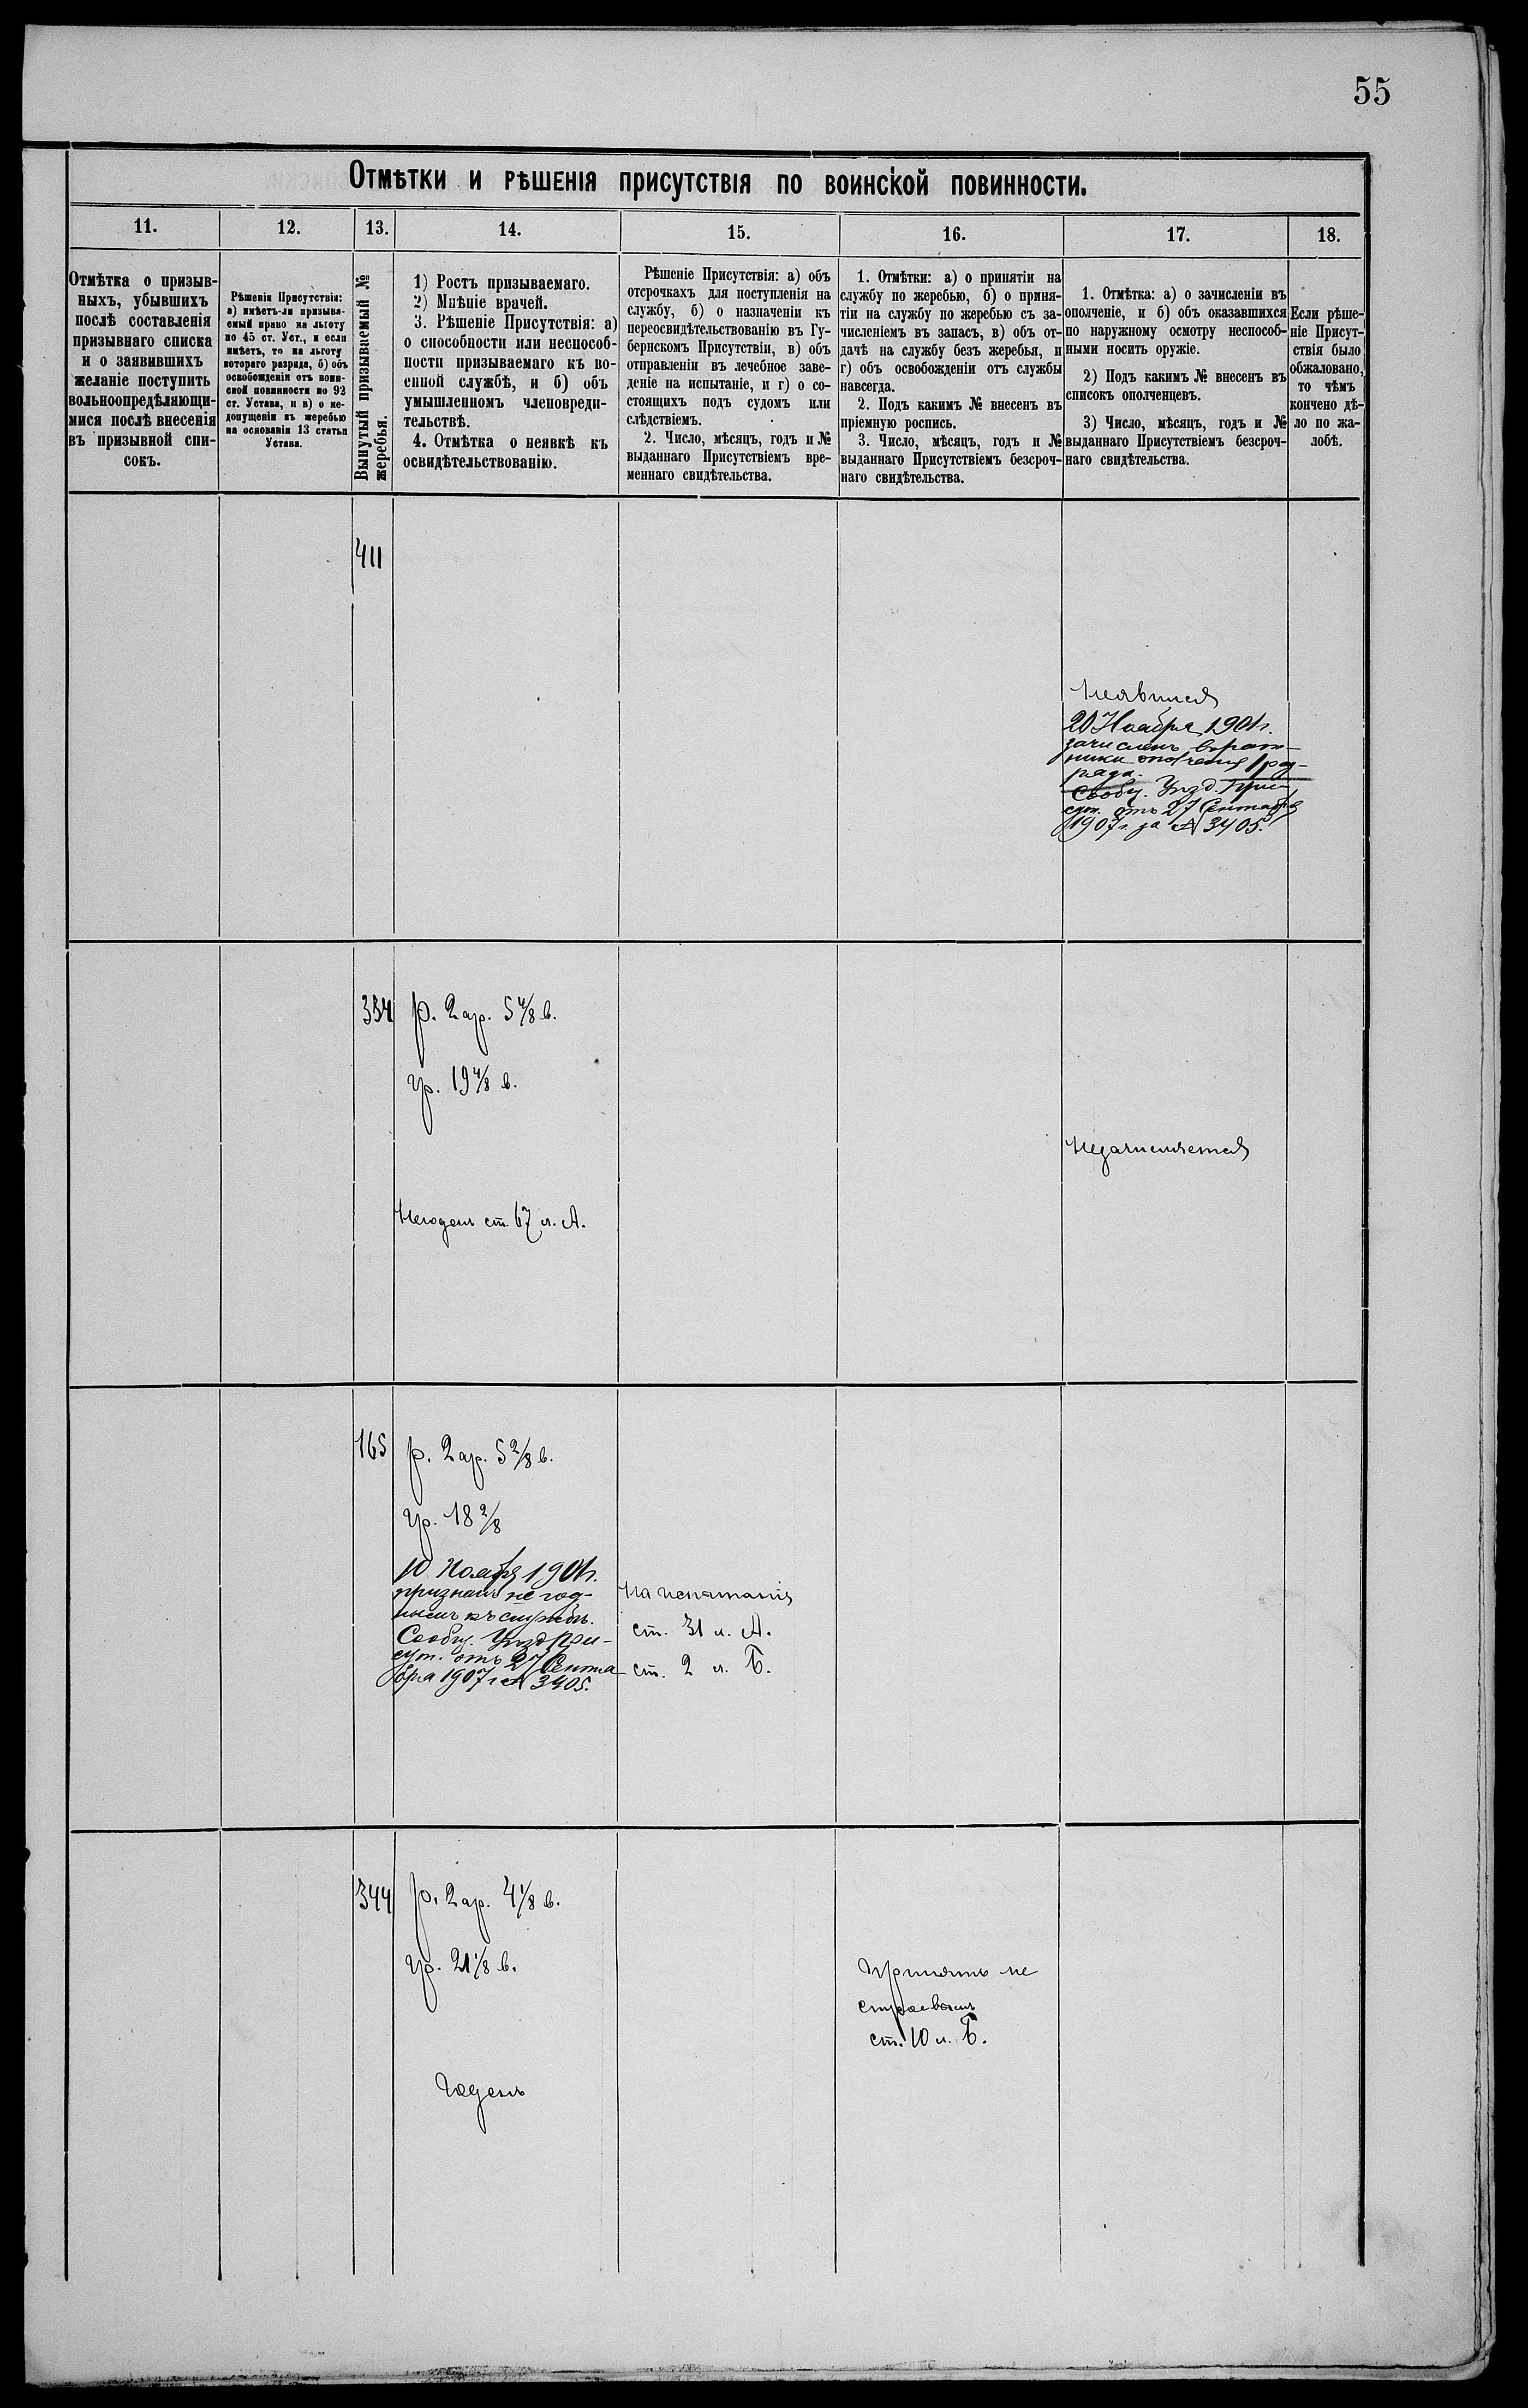 55
Отмѣтки и рѣшенія присутствія по воинской повинности.
11.
12.
13.
14.
15.
16.
17.
18.
Отмѣтка о призыв-
ныхъ, убывшихъ
послѣ составленія
призывнаго списка
и о заявившихъ
желаніе поступить
вольноопредѣляющи-
мися послѣ внесенія
въ призывной спи-
сокъ.
Рѣшенія Присутствія:
а) имѣетъ-ли призыва-
емый право на льготу
по 45 ст. Уст., и если
имѣетъ, то на льготу
котораго разряда, б) объ
освобожденіи отъ воин-
ской повинности по 92
ст. Устава, и в) о не-
допущеніи къ жеребью
на основаніи 13 статьи
Устава.
Вынутый призываемый №
жеребья.
1) Ростъ призываемаго.
2) Мнѣніе врачей.
3. Рѣшеніе Присутствія: а)
о способности или неспособ-
ности призываемаго къ во-
енной службѣ, и б) объ
умышленномъ членовреди-
тельствѣ.
4. Отмѣтка о неявкѣ къ
освидѣтельствованію.
Рѣшеніе Присутствія: а) объ
отсрочкахъ для поступленія на
службу, б) о назначеніи къ
переосвидѣтельствованію въ Гу-
бернскомъ Присутствіи, в) объ
отправленіи въ лечебное заве-
деніе на испытаніе, и г) о со-
стоящихъ подъ судомъ или
слѣдствіемъ.
2. Число, мѣсяцъ, годъ и №
выданнаго Присутствіемъ вре-
меннаго свидѣтельства.
1. Отмѣтки: а) о принятіи на
службу по жеребью, б) о приня-
тіи на службу по жеребью съ за-
численіемъ въ запасъ, в) объ от-
дачѣ на службу безъ жеребья, и
г) объ освобожденіи отъ службы
навсегда.
2. Подъ какимъ № внесенъ въ
пріемную роспись.
3. Число, мѣсяцъ, годъ и №
выданнаго Присутствіемъ безсроч-
наго свидѣтельства.
1. Отмѣтка: а) о зачисленіи въ
ополченіе, и б) объ оказавшихся
по наружному осмотру неспособ-
ными носить оружіе.
2) Подъ какимъ № внесенъ въ
списокъ ополченцевъ.
3) Число, мѣсяцъ, годъ и №
выданнаго Присутствіемъ безсроч-
наго свидѣтельства.
Если рѣше-
ніе Присут-
ствія было
обжаловано,
то чѣмъ
кончено дѣ-
ло по жа-
лобѣ.
411
Неявился
20 Ноября 1901г.
зачисленъ врат-
ники ополченія 1 раз-
ряда.
Сообщ. Уѣзд. При-
сут. отъ 27 Сентября
1907г. за № 3405.
334
р. 2 ар. 5 4/8 в.
гр. 19 4/8 в.
Негоденъ ст. 67 л. А.
Незачисляется
165
р. 2 ар. 5 2/8 в.
гр. 18 2/8
10 Ноября 1901г.
признанъ не год-
нымъ къ службѣ.
Сообщ. Уѣзд При-
сут. отъ 27 Сентя-
бря 1907 г № 3405.
На испытаніе
ст. 31 л. А.
ст. 2 л. Б.
344
р. 2 ар. 4 1/8 в.
гр. 21 1/8 в.
Годенъ
Принятъ не
строевымъ
ст. 10 л. Б.